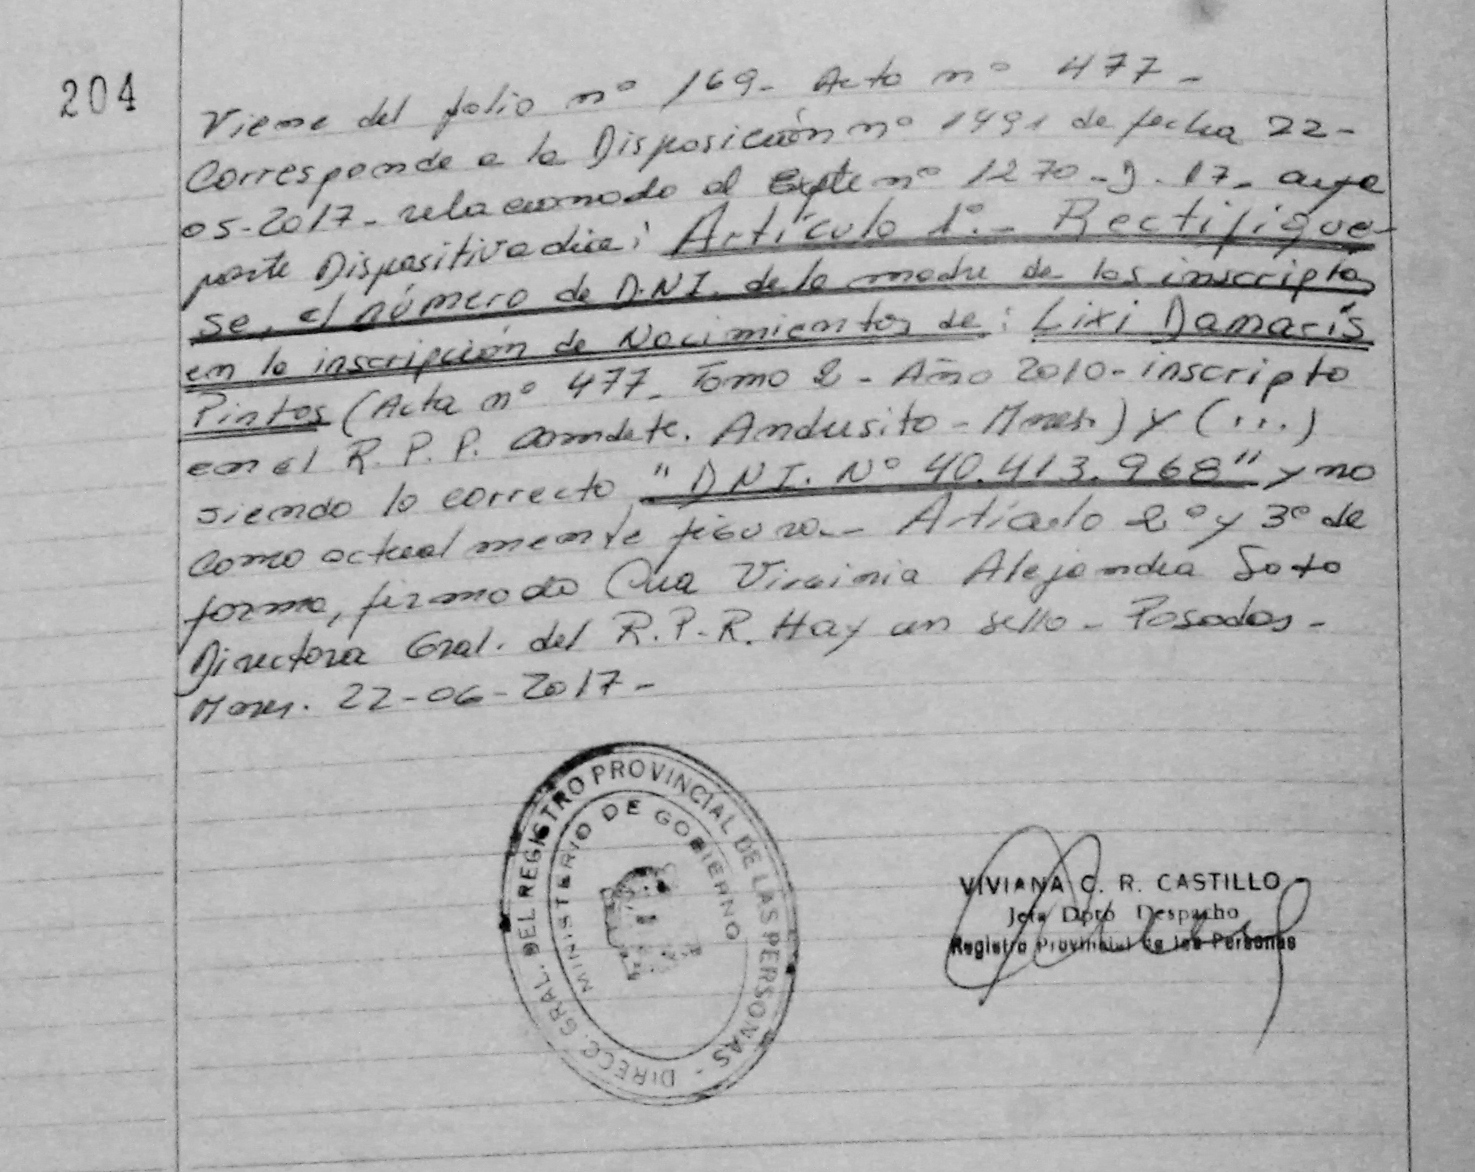 204
Viene del folio nº 169- Acta nº 477-
Corresponde a la Disposición nº 1491 de fecha 22-
05-2017- relacionado al Expte nº 1270-J-17- cuya
parte Dispositiva dice: Artículo 1º.- Rectifique-
se, el número de D.N.I. de la madre de los inscriptos
en la inscripción de Nacimientos de: Lixi Damaris
Pintos (Acta nº 477- Tomo 2- Año 2010- inscripto
en el R.P.P. Comdte. Andresito- Mnes.) y (...)
siendo lo correcto "DNI. Nº 40.413.968" y no
como actualmente figura.- Artículo 2º y 3º de
forma, firmado Cra Virginia Alejandra Soto
Directora Gral. del R.P.R. Hay un sello- Posadas-
Mnes. 22-06-2017-
DIRECC. GRAL. DEL REGISTRO PROVINCIAL DE LAS PERSONAS -
MINISTERIO DE GOBIERNO
VIVIANA C. R. CASTILLO
Jefa Dpto Despacho
Registro Provincial de las Personas